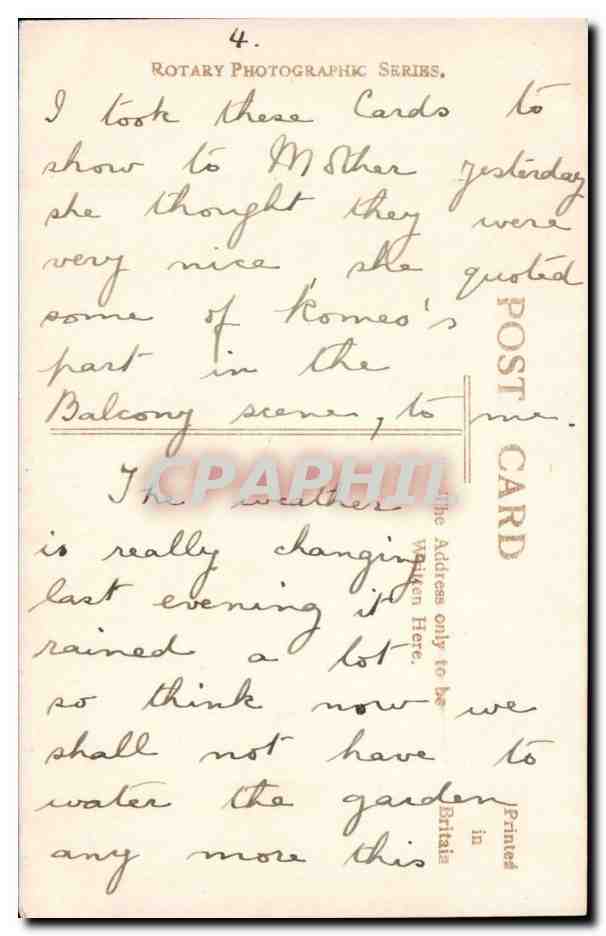 4.
ROTARY PHOTOGRAPHIC SERIES.
I took these Cards to
show to Mother yesterday
she thought they were
very nice, she quoted
some of Romeo's
part in the
Balcony scene, to me.
The weather
is really changing
last evening it
rained a lot
so think now we
shall not have to
water the garden
any more this
POST CARD
The Address only to be
Written Here.
Printed
in
Britain
CPAPHIL